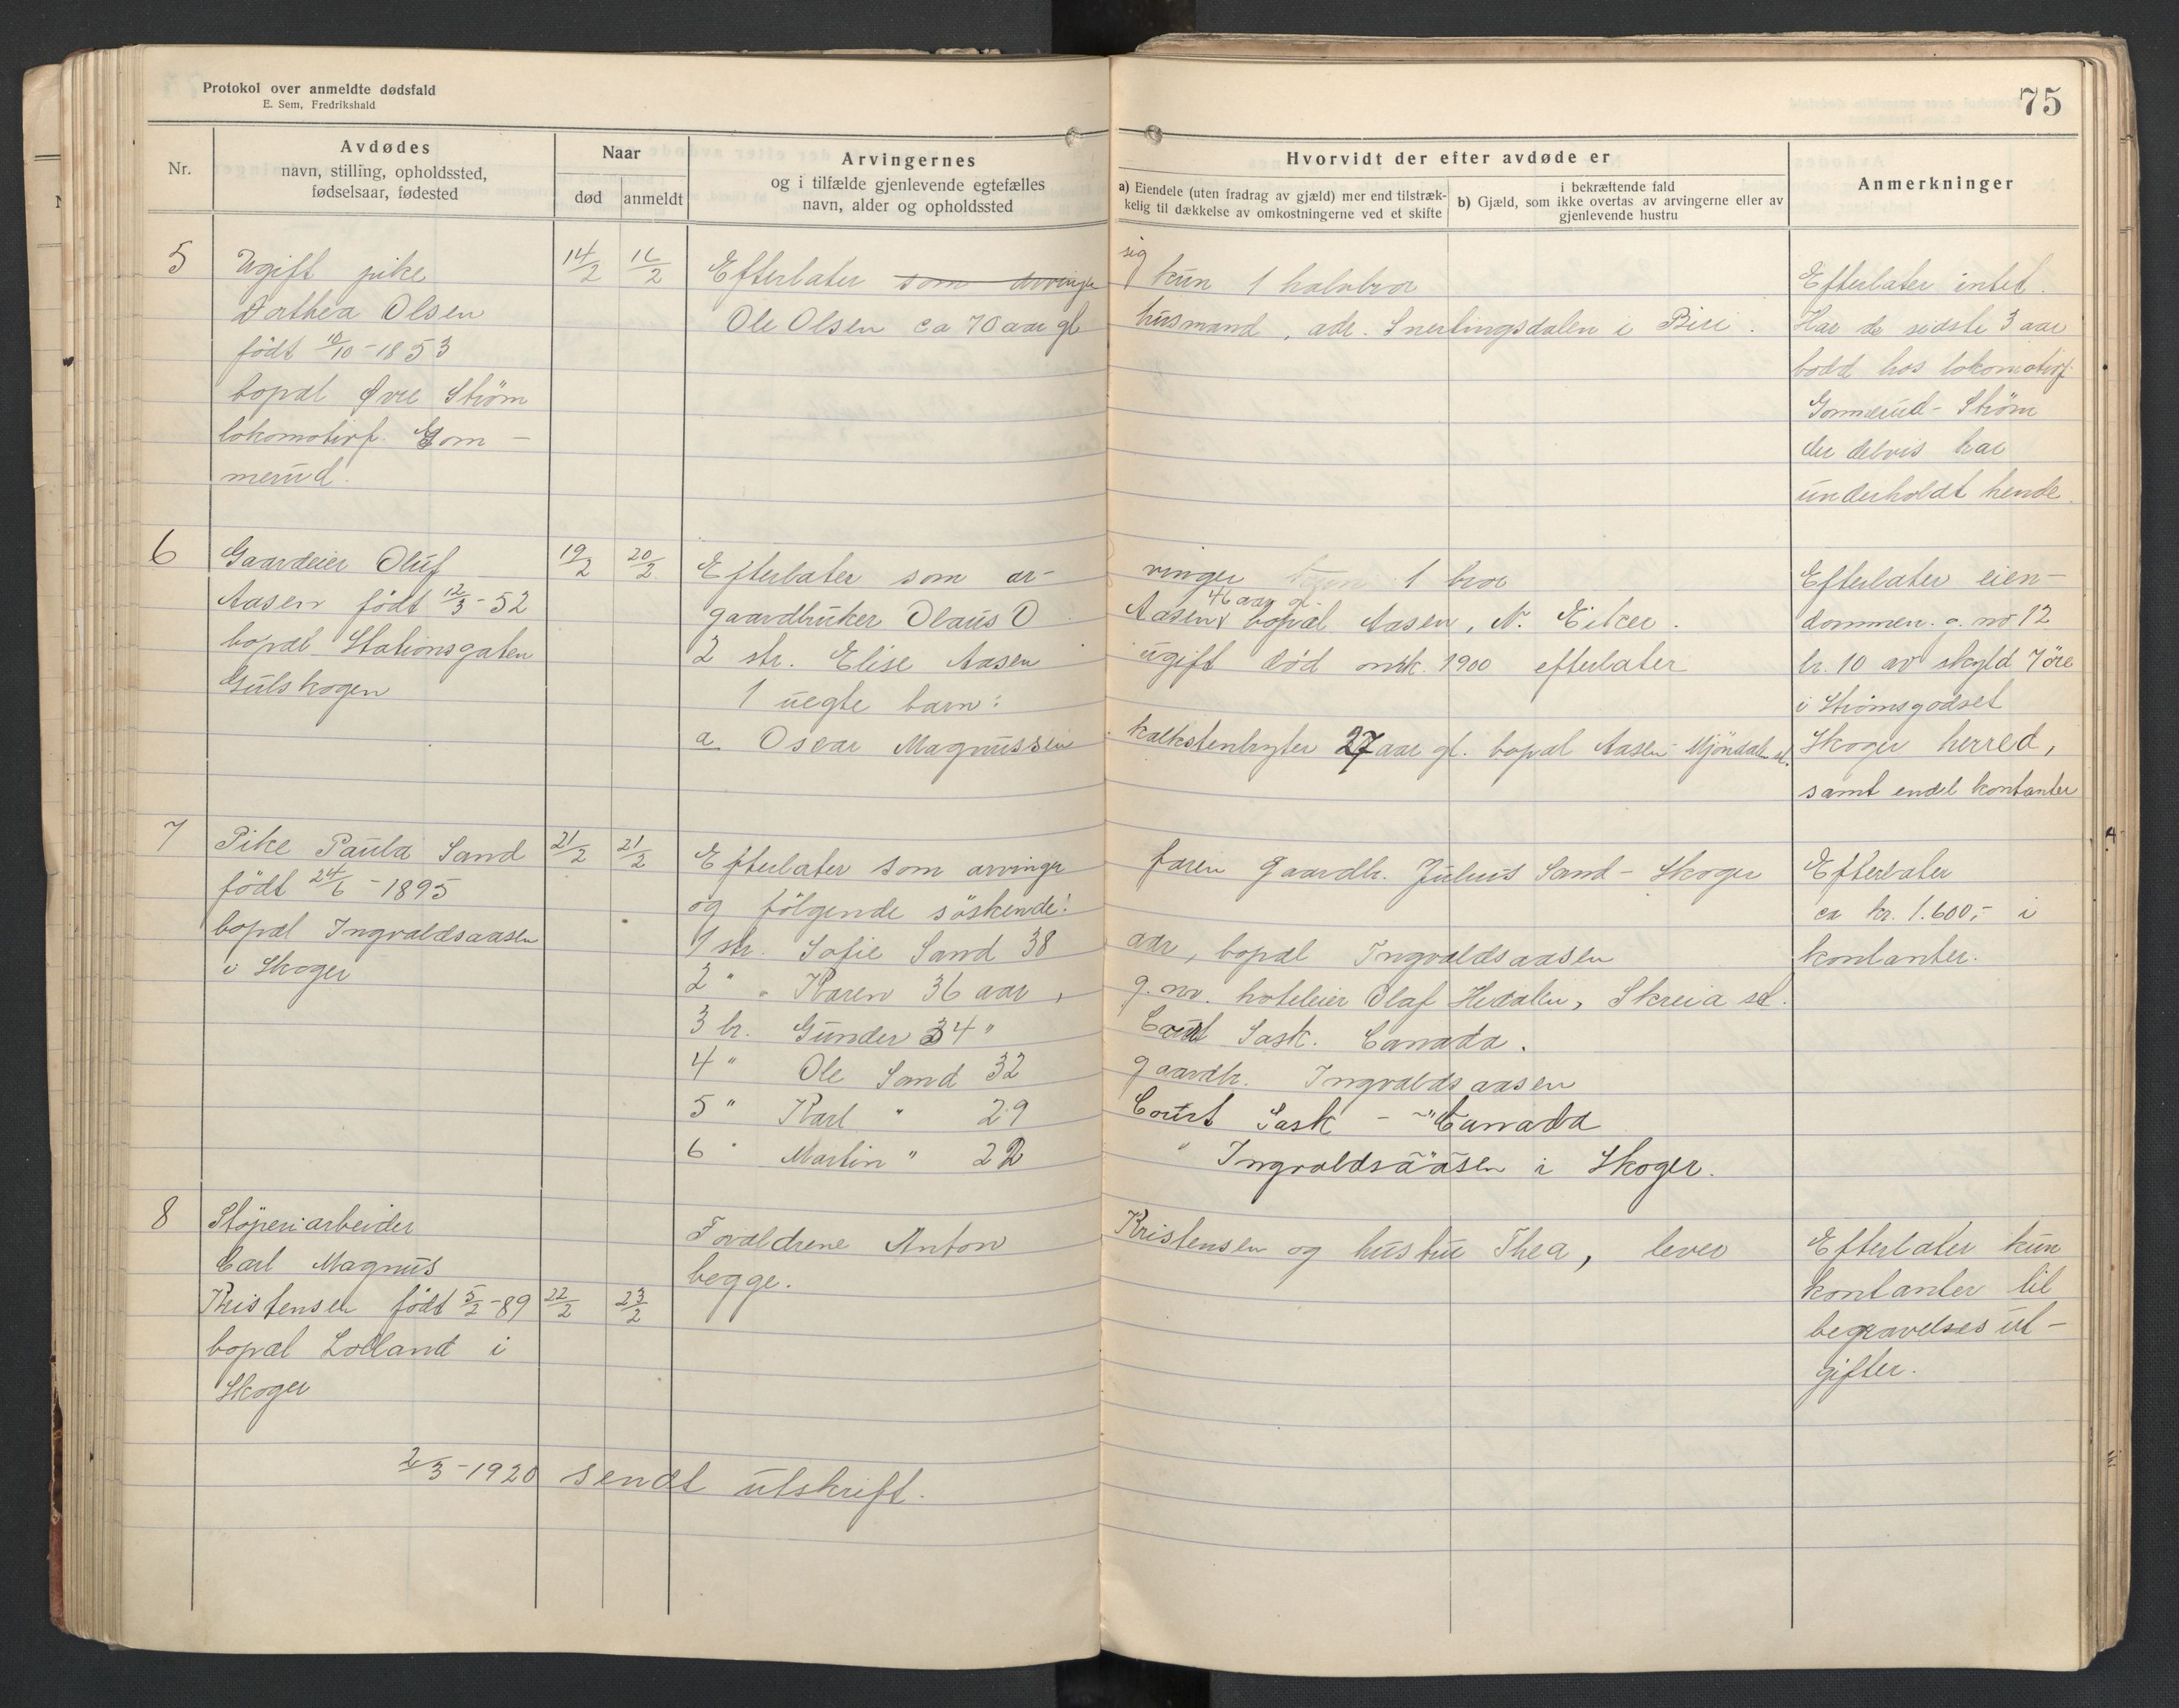 Protokol over anmeldte dødsfald
E. Sem, Fredrikshald
75
Nr.
Avdødes
navn, stilling, opholdssted,
fødselsaar, fødested
Naar
død
anmeldt
Arvingernes
og i tilfælde gjenlevende egtefælles
navn, alder og opholdssted
Hvorvidt der efter avdøde er
a) Eiendele (uten fradrag av gjæld) mer end tilstræk-
kelig til dækkelse av omkostningerne ved et skifte
i bekræftende fald
b) Gjæld, som ikke overtas av arvingerne eller av
gjenlevende hustru
Anmerkninger
5
Ugift pike
Dorthea Olsen
født 10/10-1853
bopæl Øvre Strøm
lokomotivf. Gom-
merud.
14/2
16/2
Efterlater som arvinger sig kun 1 halvbror
Ole Olsen ca 70 aar gl husmand, adr. Snertingsdalen i Biri.
Efterlater intet.
Har de sidste 3 aar
bodd hos lokomotivf.
Gommerud - Strøm
der delvis har
underholdt hende.
6
Gaardeier Oluf
Aasen født 12/3-52
bopæl Stationsgaten
Gulskogen
19/2
20/2
Efterlater som ar- vinger 1 bror
46 aar gl.
gaardbruker Olaus O Aasen bopæl Aasen, N. Eiker.
2 str. Elise Aasen ugift død omk. 1900 efterlater
1 uegte barn:
a Oscar Magnussen kalkstenbryter 27 aar gl. bopæl Aasen - Mjöndalen st.
Efterlater eien-
dommen g. no 12
br. 10 av skyld 7 øre
i Strømsgodset
Skoger herred,
samt endel kontanter
7
Pike Paula Sand
født 24/6-1895
bopæl Ingvaldsaasen
i Skoger
21/2
21/2
Efterlater som arvinger faren gaardbr. Julius Sand - Skoger
og følgende søskende:
1 str. Sofie Sand 38 aar, bopæl Ingvaldsaasen
2 " " Karen 36 aar, g. m. hoteleier Olaf Hvdalen, Skreia st.
3 br. Gunder 34 " Court Sask. Canada.
4 " Ole Sand 32 gaardbr. Ingvaldsaasen
5 " Karl " 29 Court Sask - " Canada
6 " Martin " 22 " Ingvaldsaasen i Skoger.
Efterlater
ca kr. 1.600,- i
kontanter.
8
Støperiarbeider
Carl Magnus
Kristensen født 5/2-89
bopæl Lolland i
Skoger
22/2
23/2
Forældrene Anton Kristensen og hustru Thea, lever
begge.
Efterlater kun
kontanter til
begravelses ut-
gifter.
2/3-1920 sendt utskrift.